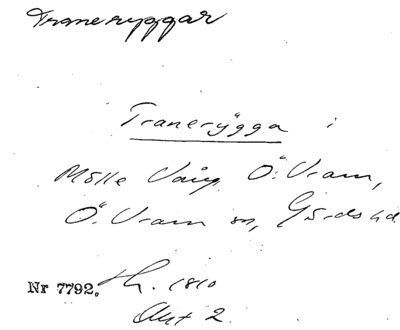 Traneryggar
Tranerygga i
Mölle Vång Ö. Vram,
Ö. Vram sn, Gärds hd
Nr 7792. Lh. 1810
Akt 2.